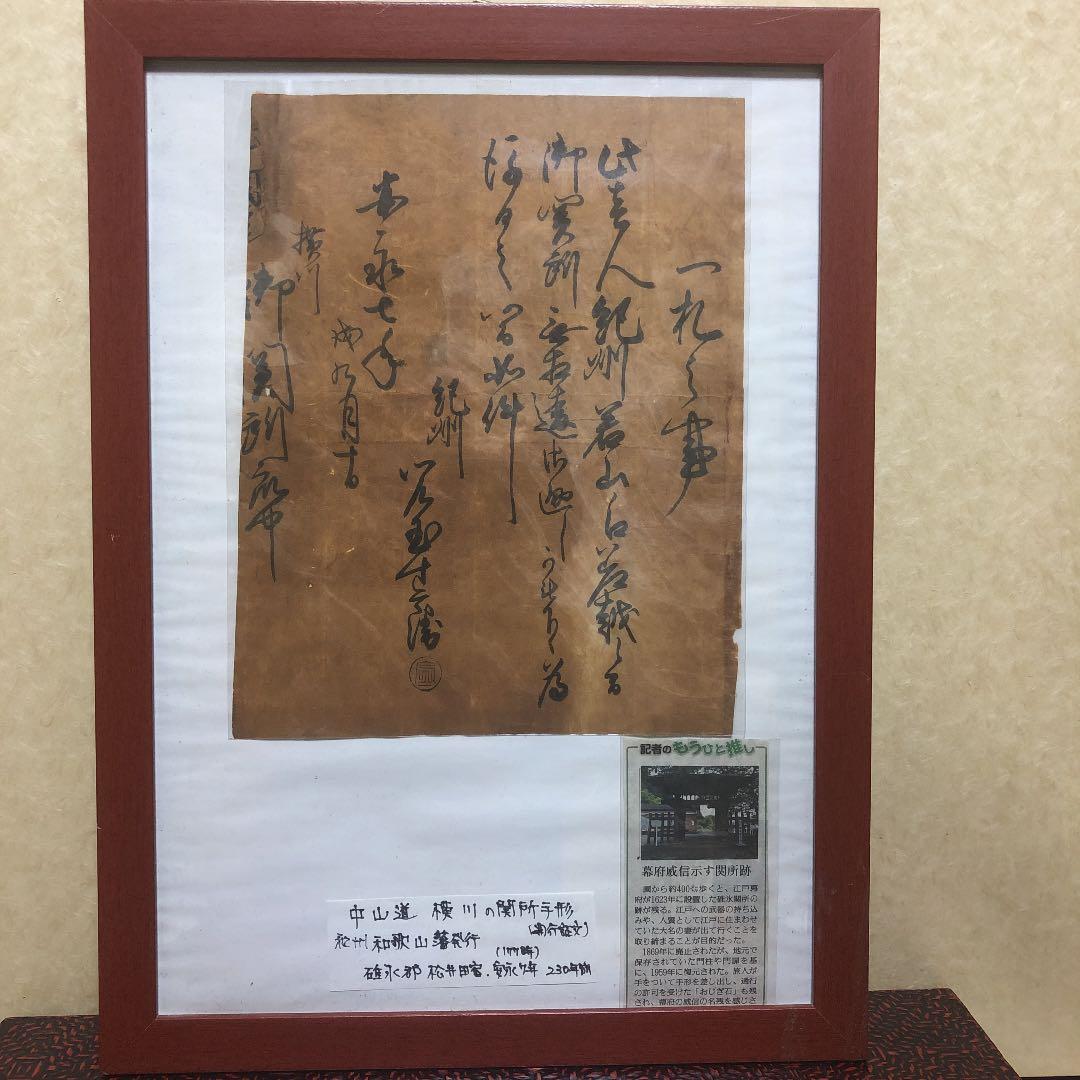 一札之事
此壱人紀州若山ゟ罷越候間
御関所無相違御通し可被下候為
後日之一筆如件
紀州
安永七年
戌九月十日
横川
御関所衆中
中山道 横川の関所手形
(通行証文)
紀州和歌山藩発行
碓氷郡 松井田宿・安永7年 230年前
記者のもうひと推し
幕府威信示す関所跡
園から約400㍍歩くと、江戸幕
府が1623年に設置した碓氷関所の
跡が残る。江戸への武器の持ち込
みや、人質として江戸に住まわせ
ていた大名の妻が出て行くことを
取り締まることが目的だった。
1869年に廃止されたが、地元で
保存されていた門柱や門扉を基
に、1959年に復元された。旅人が
手をついて手形を差し出し、通行
の許可を受けた「おじぎ石」も残
され、幕府の威信の名残を感じさ